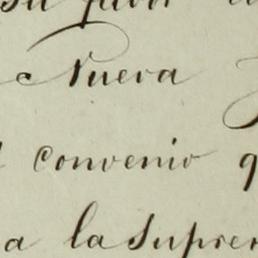 su favor
Nueva
convenio q
a la Suprem